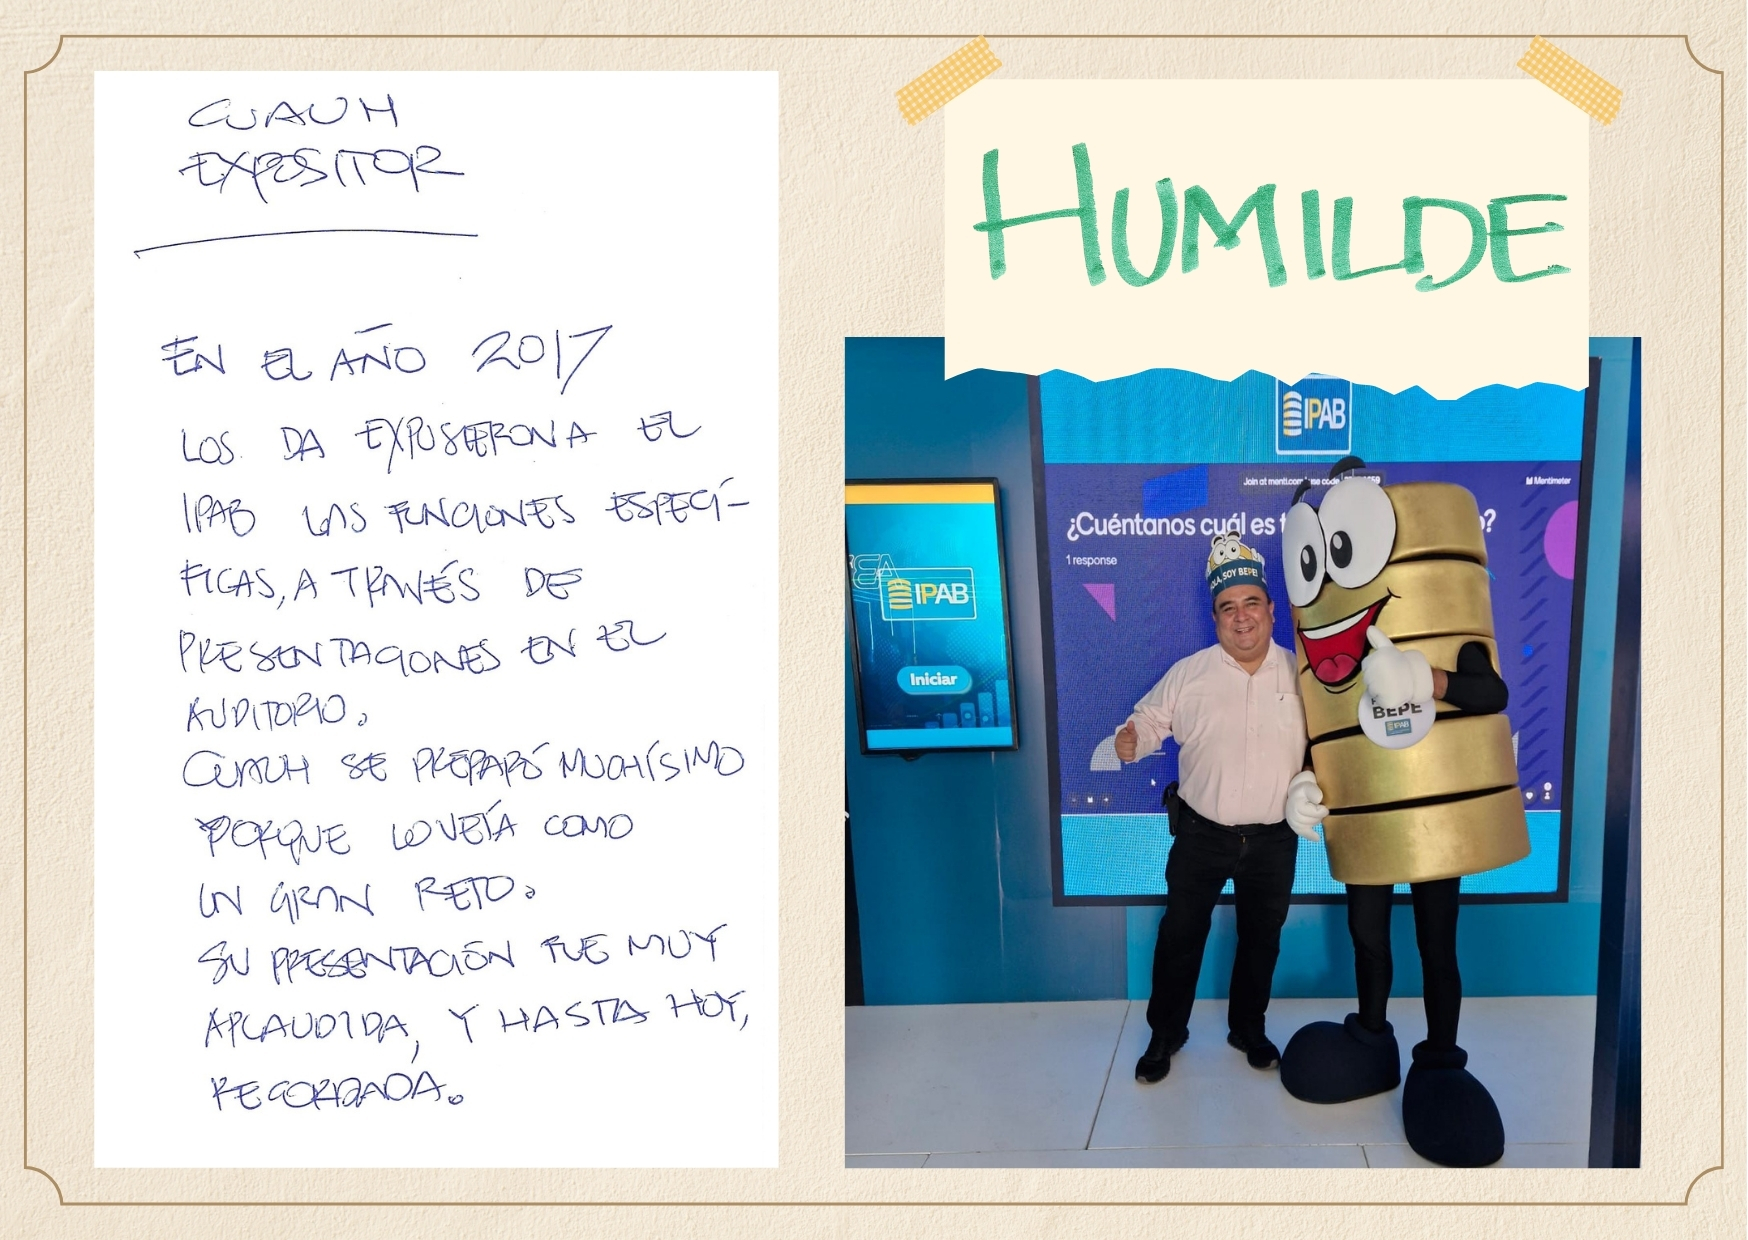 CUAUH
EXPOSITOR
EN EL AÑO 2017
LOS DA EXPUSIERON A EL
IPAB LAS FUNCIONES ESPECÍ-
FICAS, A TRAVÉS DE
PRESENTACIONES EN EL
AUDITORIO.
CUAUH SE PREPARÓ MUCHÍSIMO
PORQUE LO VEÍA COMO
UN GRAN RETO.
SU PRESENTACIÓN FUE MUY
APLAUDIDA, Y HASTA HOY,
RECORDADA.
HUMILDE
IPAB
Join at menti.com use code
Mentimeter
¿Cuéntanos cuál es
1 response
IPAB
Iniciar
HOLA, SOY BEPE!
BEPE
IPAB